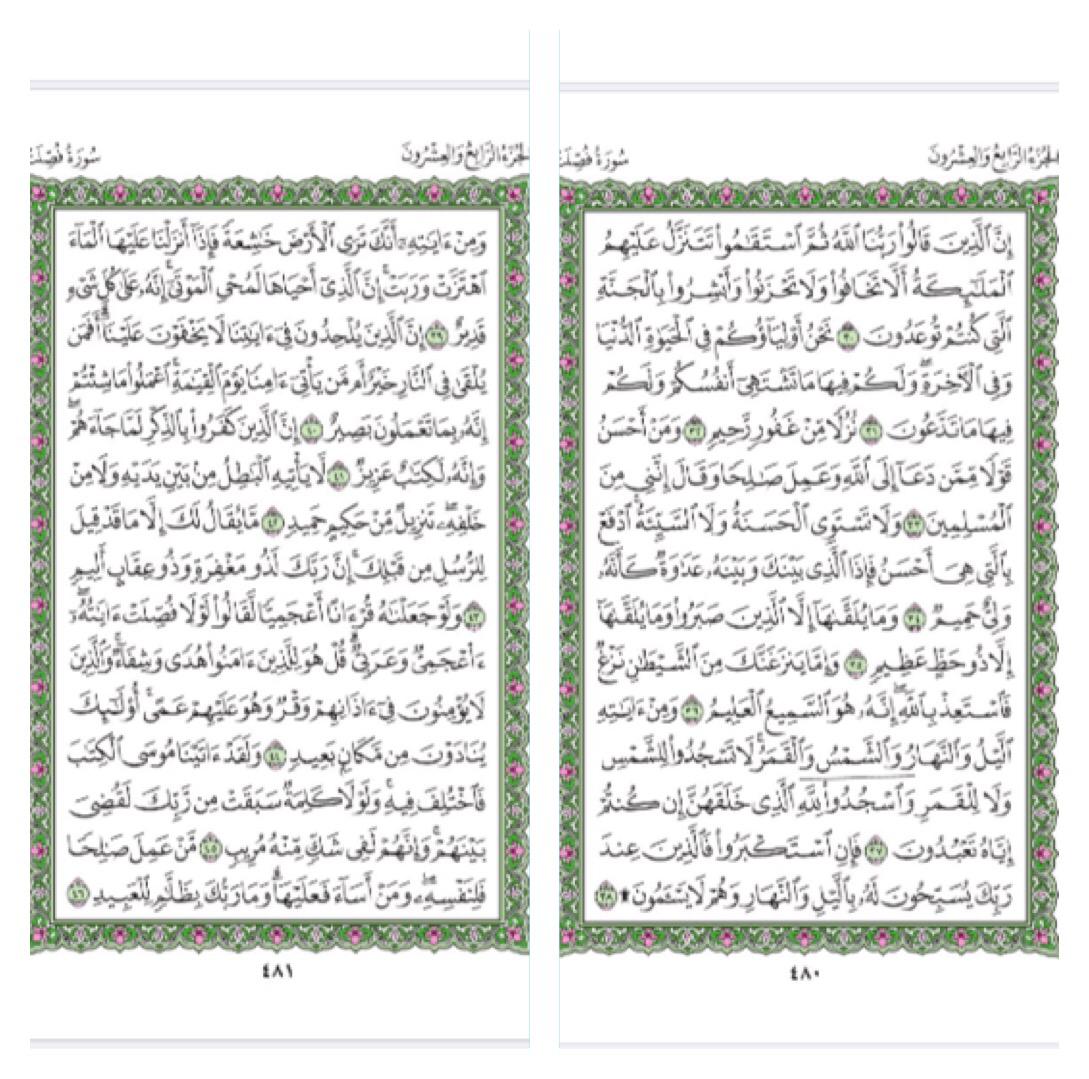 الجزء الرابع والعشرون
سورة فصلت
إِنَّ ٱلَّذِينَ قَالُوا۟ رَبُّنَا ٱللَّهُ ثُمَّ ٱسْتَقَٰمُوا۟ تَتَنَزَّلُ عَلَيْهِمُ
ٱلْمَلَٰٓئِكَةُ أَلَّا تَخَافُوا۟ وَلَا تَحْزَنُوا۟ وَأَبْشِرُوا۟ بِٱلْجَنَّةِ
ٱلَّتِى كُنتُمْ تُوعَدُونَ ٣٠ نَحْنُ أَوْلِيَآؤُكُمْ فِى ٱلْحَيَوٰةِ ٱلدُّنْيَا
وَفِى ٱلْءَاخِرَةِ ۖ وَلَكُمْ فِيهَا مَا تَشْتَهِىٓ أَنفُسُكُمْ وَلَكُمْ
فِيهَا مَا تَدَّعُونَ ٣١ نُزُلًا مِّنْ غَفُورٍ رَّحِيمٍ ٣٢ وَمَنْ أَحْسَنُ
قَوْلًا مِّمَّن دَعَآ إِلَى ٱللَّهِ وَعَمِلَ صَٰلِحًا وَقَالَ إِنَّنِى مِنَ
ٱلْمُسْلِمِينَ ٣٣ وَلَا تَسْتَوِى ٱلْحَسَنَةُ وَلَا ٱلسَّيِّئَةُ ۚ ٱدْفَعْ
بِٱلَّتِى هِىَ أَحْسَنُ فَإِذَا ٱلَّذِى بَيْنَكَ وَبَيْنَهُۥ عَدَٰوَةٌ كَأَنَّهُۥ
وَلِىٌّ حَمِيمٌ ٣٤ وَمَا يُلَقَّىٰهَآ إِلَّا ٱلَّذِينَ صَبَرُوا۟ وَمَا يُلَقَّىٰهَآ
إِلَّا ذُو حَظٍّ عَظِيمٍ ٣٥ وَإِمَّا يَنزَغَنَّكَ مِنَ ٱلشَّيْطَٰنِ نَزْغٌ
فَٱسْتَعِذْ بِٱللَّهِ ۖ إِنَّهُۥ هُوَ ٱلسَّمِيعُ ٱلْعَلِيمُ ٣٦ وَمِنْ ءَايَٰتِهِ
ٱلَّيْلُ وَٱلنَّهَارُ وَٱلشَّمْسُ وَٱلْقَمَرُ ۚ لَا تَسْجُدُوا۟ لِلشَّمْسِ
وَلَا لِلْقَمَرِ وَٱسْجُدُوا۟ لِلَّهِ ٱلَّذِى خَلَقَهُنَّ إِن كُنتُمْ
إِيَّاهُ تَعْبُدُونَ ٣٧ فَإِنِ ٱسْتَكْبَرُوا۟ فَٱلَّذِينَ عِندَ
رَبِّكَ يُسَبِّحُونَ لَهُۥ بِٱلَّيْلِ وَٱلنَّهَارِ وَهُمْ لَا يَسْـَٔمُونَ ۩ ٣٨
٤٨٠
الجزء الرابع والعشرون
سورة فصلت
وَمِنْ ءَايَٰتِهِۦٓ أَنَّكَ تَرَى ٱلْأَرْضَ خَٰشِعَةً فَإِذَآ أَنزَلْنَا عَلَيْهَا ٱلْمَآءَ
ٱهْتَزَّتْ وَرَبَتْ ۚ إِنَّ ٱلَّذِىٓ أَحْيَاهَا لَمُحْىِ ٱلْمَوْتَىٰٓ ۚ إِنَّهُۥ عَلَىٰ كُلِّ شَىْءٍ
قَدِيرٌ ٣٩ إِنَّ ٱلَّذِينَ يُلْحِدُونَ فِىٓ ءَايَٰتِنَا لَا يَخْفَوْنَ عَلَيْنَآ ۗ أَفَمَن
يُلْقَىٰ فِى ٱلنَّارِ خَيْرٌ أَم مَّن يَأْتِىٓ ءَامِنًا يَوْمَ ٱلْقِيَٰمَةِ ۚ ٱعْمَلُوا۟ مَا شِئْتُمْ ۖ
إِنَّهُۥ بِمَا تَعْمَلُونَ بَصِيرٌ ٤٠ إِنَّ ٱلَّذِينَ كَفَرُوا۟ بِٱلذِّكْرِ لَمَّا جَآءَهُمْ ۖ
وَإِنَّهُۥ لَكِتَٰبٌ عَزِيزٌ ٤١ لَّا يَأْتِيهِ ٱلْبَٰطِلُ مِنۢ بَيْنِ يَدَيْهِ وَلَا مِنْ
خَلْفِهِۦ ۖ تَنزِيلٌ مِّنْ حَكِيمٍ حَمِيدٍ ٤٢ مَّا يُقَالُ لَكَ إِلَّا مَا قَدْ قِيلَ
لِلرُّسُلِ مِن قَبْلِكَ ۚ إِنَّ رَبَّكَ لَذُو مَغْفِرَةٍ وَذُو عِقَابٍ أَلِيمٍ
٤٣ وَلَوْ جَعَلْنَٰهُ قُرْءَانًا أَعْجَمِيًّا لَّقَالُوا۟ لَوْلَا فُصِّلَتْ ءَايَٰتُهُۥٓ ۖ
ءَا۬عْجَمِىٌّ وَعَرَبِىٌّ ۗ قُلْ هُوَ لِلَّذِينَ ءَامَنُوا۟ هُدًى وَشِفَآءٌ ۖ وَٱلَّذِينَ
لَا يُؤْمِنُونَ فِىٓ ءَاذَانِهِمْ وَقْرٌ وَهُوَ عَلَيْهِمْ عَمًى ۚ أُو۟لَٰٓئِكَ
يُنَادَوْنَ مِن مَّكَانٍۭ بَعِيدٍ ٤٤ وَلَقَدْ ءَاتَيْنَا مُوسَى ٱلْكِتَٰبَ
فَٱخْتُلِفَ فِيهِ ۗ وَلَوْلَا كَلِمَةٌ سَبَقَتْ مِن رَّبِّكَ لَقُضِىَ
بَيْنَهُمْ ۚ وَإِنَّهُمْ لَفِى شَكٍّ مِّنْهُ مُرِيبٍ ٤٥ مَّنْ عَمِلَ صَٰلِحًا
فَلِنَفْسِهِۦ ۖ وَمَنْ أَسَآءَ فَعَلَيْهَا ۗ وَمَا رَبُّكَ بِظَلَّٰمٍ لِّلْعَبِيدِ ٤٦
٤٨١